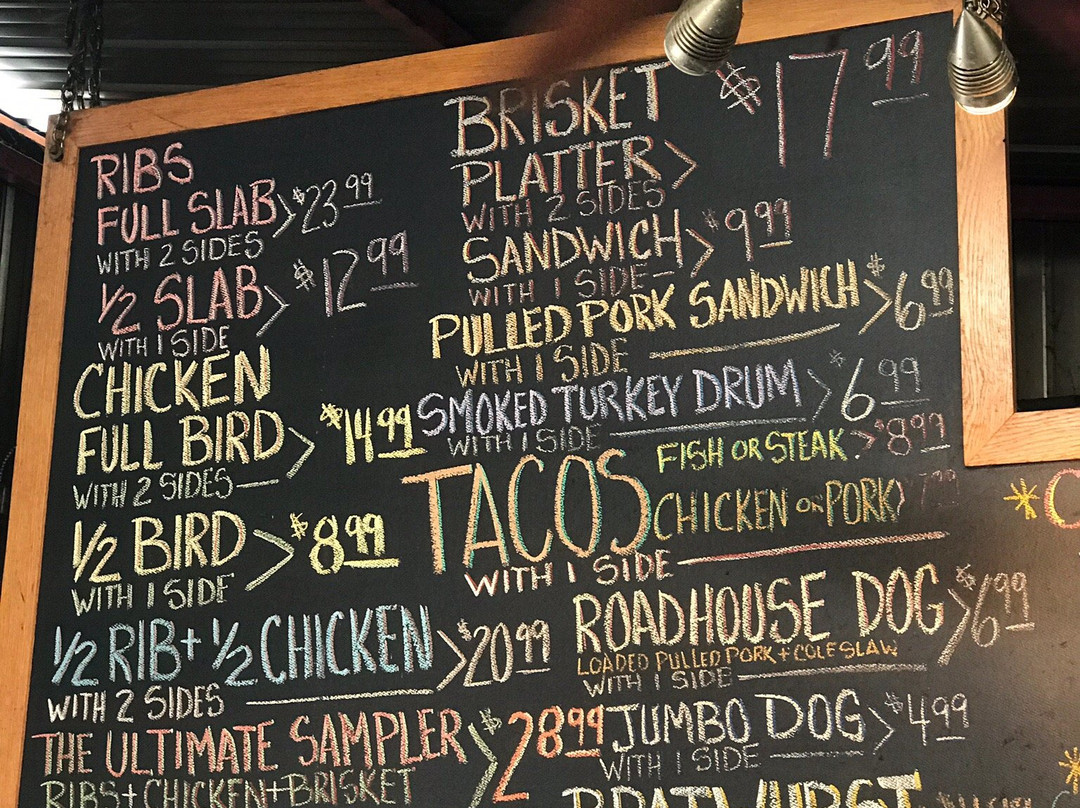 RIBS
FULL SLAB > $23.99
WITH 2 SIDES
1/2 SLAB > $12.99
WITH 1 SIDE
CHICKEN
FULL BIRD > $14.99
WITH 2 SIDES
1/2 BIRD > $8.99
WITH 1 SIDE
1/2 RIB + 1/2 CHICKEN > $20.99
WITH 2 SIDES
THE ULTIMATE SAMPLER > $28.99
RIBS + CHICKEN + BRISKET
BRISKET
PLATTER > $17.99
WITH 2 SIDES
SANDWICH > $9.99
WITH 1 SIDE
PULLED PORK SANDWICH > $6.99
WITH 1 SIDE
SMOKED TURKEY DRUM > $6.99
WITH 1 SIDE
TACOS
FISH OR STEAK > $8.99
CHICKEN OR PORK >
WITH 1 SIDE
ROADHOUSE DOG > $6.99
LOADED PULLED PORK + COLESLAW
WITH 1 SIDE
JUMBO DOG > $4.99
WITH 1 SIDE